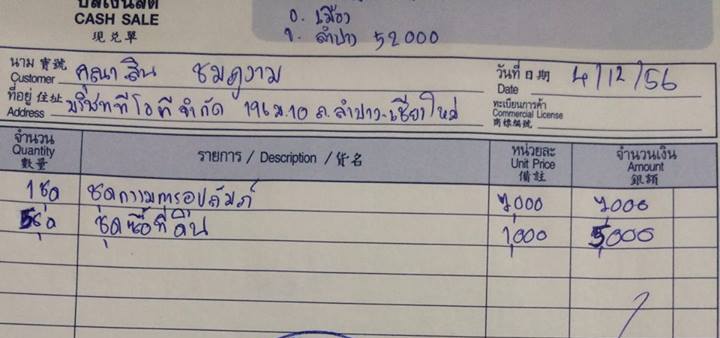 บิลเงินสด
CASH SALE
現兌單
อ. เมือง
จ. ลำปาง 52000
นาม 寶號
Customer คุณาสิน ชมภูงาม
วันที่ 日期
Date 4/12/56
ที่อยู่ 住址
Address บริษัททีโอที จำกัด 196 ม.10 ถ.ลำปาง-เชียงใหม่
ทะเบียนการค้า
Commercial License
商標編號
จำนวน
Quantity
數量
รายการ / Description / 貨名
หน่วยละ
Unit Price
備註
จำนวนเงิน
Amount
銀額
1ชุด ชุดกรรมการอุปถัมภ์ 7,000 7,000
5ชุด ชุดซื้อที่ดิน 1,000 5,000